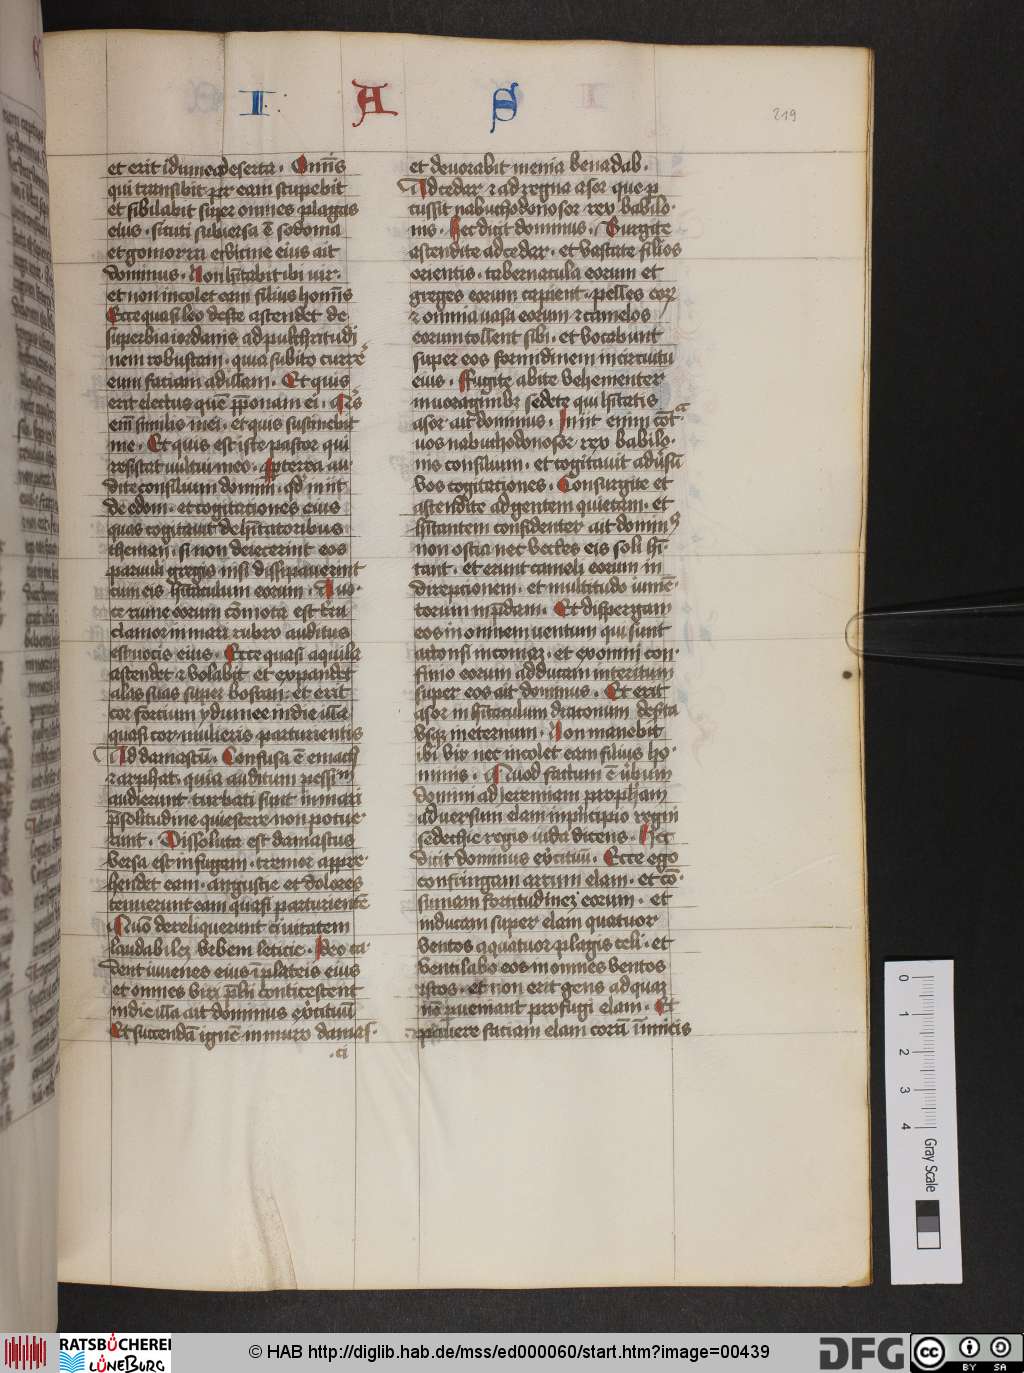 I A S
219
et erit idumea deserta. Omnis
qui transibit per eam stupebit
et sibilabit super omnes plagas
eius. sicuti subversa ē sodoma
et gomorra et vicine eius ait
dominus. Non hītabit ibi uir.
et non incolet eam filius homīs
Ecce quasi leo deste ascendet de
superbia iordanis ad pulchritudi
nem robustam. quia subito curre
eum faciam ad illam. Et quis
erit electus quē pponam ei. Qis
eni similis mei. et quis sustinebit
me. Et quis est iste pastor qui
resistat uultui meo. Apterea au
dite consilium domini. qd iniit
de edom. et cogitationes eius
quas cogitauit de hītatoribus
theman. si non deiecerint eos
paruuli gregis nisi dissipauerint
cum eis hītaculum eorum. A uo
ce ruine eorum cōmota est tra
clamor in mari rubro auditus
est uocis eius. Ecce quasi aquila
ascendet et volabit et expandet
alas suas super bostan. et erit
cor fortium ydumee in die illa
quasi cor mulieris parturientis
Ad damascū. Confusa ē emath
et arphat. quia auditum pessimū
audierunt turbati sunt in mari
p̄ solitudine quiescere non potue
runt. Dissoluta est damascus
versa est in fugam. tremor appre
hendet eam. angustie et dolores
tenuerunt eam quasi parturientē
Quō dereliquerunt ciuitatem
laudabilez vrbem leticie. Ideo ca
dent iuuenes eius ī plateis eius
et omnes viri plii conticescent
in die illa ait dominus exercituū
Et succendā ignē in muro damas
.ci
et devorabit menia benadab.
Ad cedar et ad regna asor que p
cussit nabuchodonosor rex babilo
nis. Hec dicit dominus. Surgite
ascendite ad cedar. et vastate filios
orientis. tabernacula eorum et
greges eorum capient. pelles eor
et omnia uasa eorum et camelos
eorum tollent sibi. et vocabunt
super eos formidinem in circuitu
eius. Fugite abite vehementer
in uoraginibz sedete qui hītatis
asor ait dominus. Iniit enim cont
uos nabuchodonosor rex babilo
nis consilium. et cogitauit adusū
vos cogitationes. Consurgite et
ascendite ad gentem quietam. et
hītantem confidenter ait domin9
non ostia nec vectes eis soli hī
tant. et erunt cameli eorum in
direptionem. et multitudo iumē
torum in pdam. Et dispergam
eos in omnem uentum qui sunt
attonsi in comaz. et ex omni con
finio eorum adducam interitum
super eos ait dominus. Et erit
asor in hītaculum draconum deserta
vsqz in eternum. Non manebit
ibi vir nec incolet eam filius ho
minis. Quod factum ē ubum
domini ad jeremiam propham
adversum elam in principio regni
sedechie regis iuda dicens. Hec
dicit dominus exercituū. Ecce ego
confringam arcum elam. et cō
sumam fortitudinez eorum. et
inducam super elam quatuor
ventos a quatuor plagis celi. et
ventilabo eos in omnes ventos
istos. et non erit gens ad quaz
nō pueniant profugi elam. Et
pauere faciam elam corā inimicis
0
1
2
3
4
Gray Scale
RATSBÜCHEREI
LÜNEBURG
© HAB http://diglib.hab.de/mss/ed000060/start.htm?image=00439
DFG
cc
BY SA